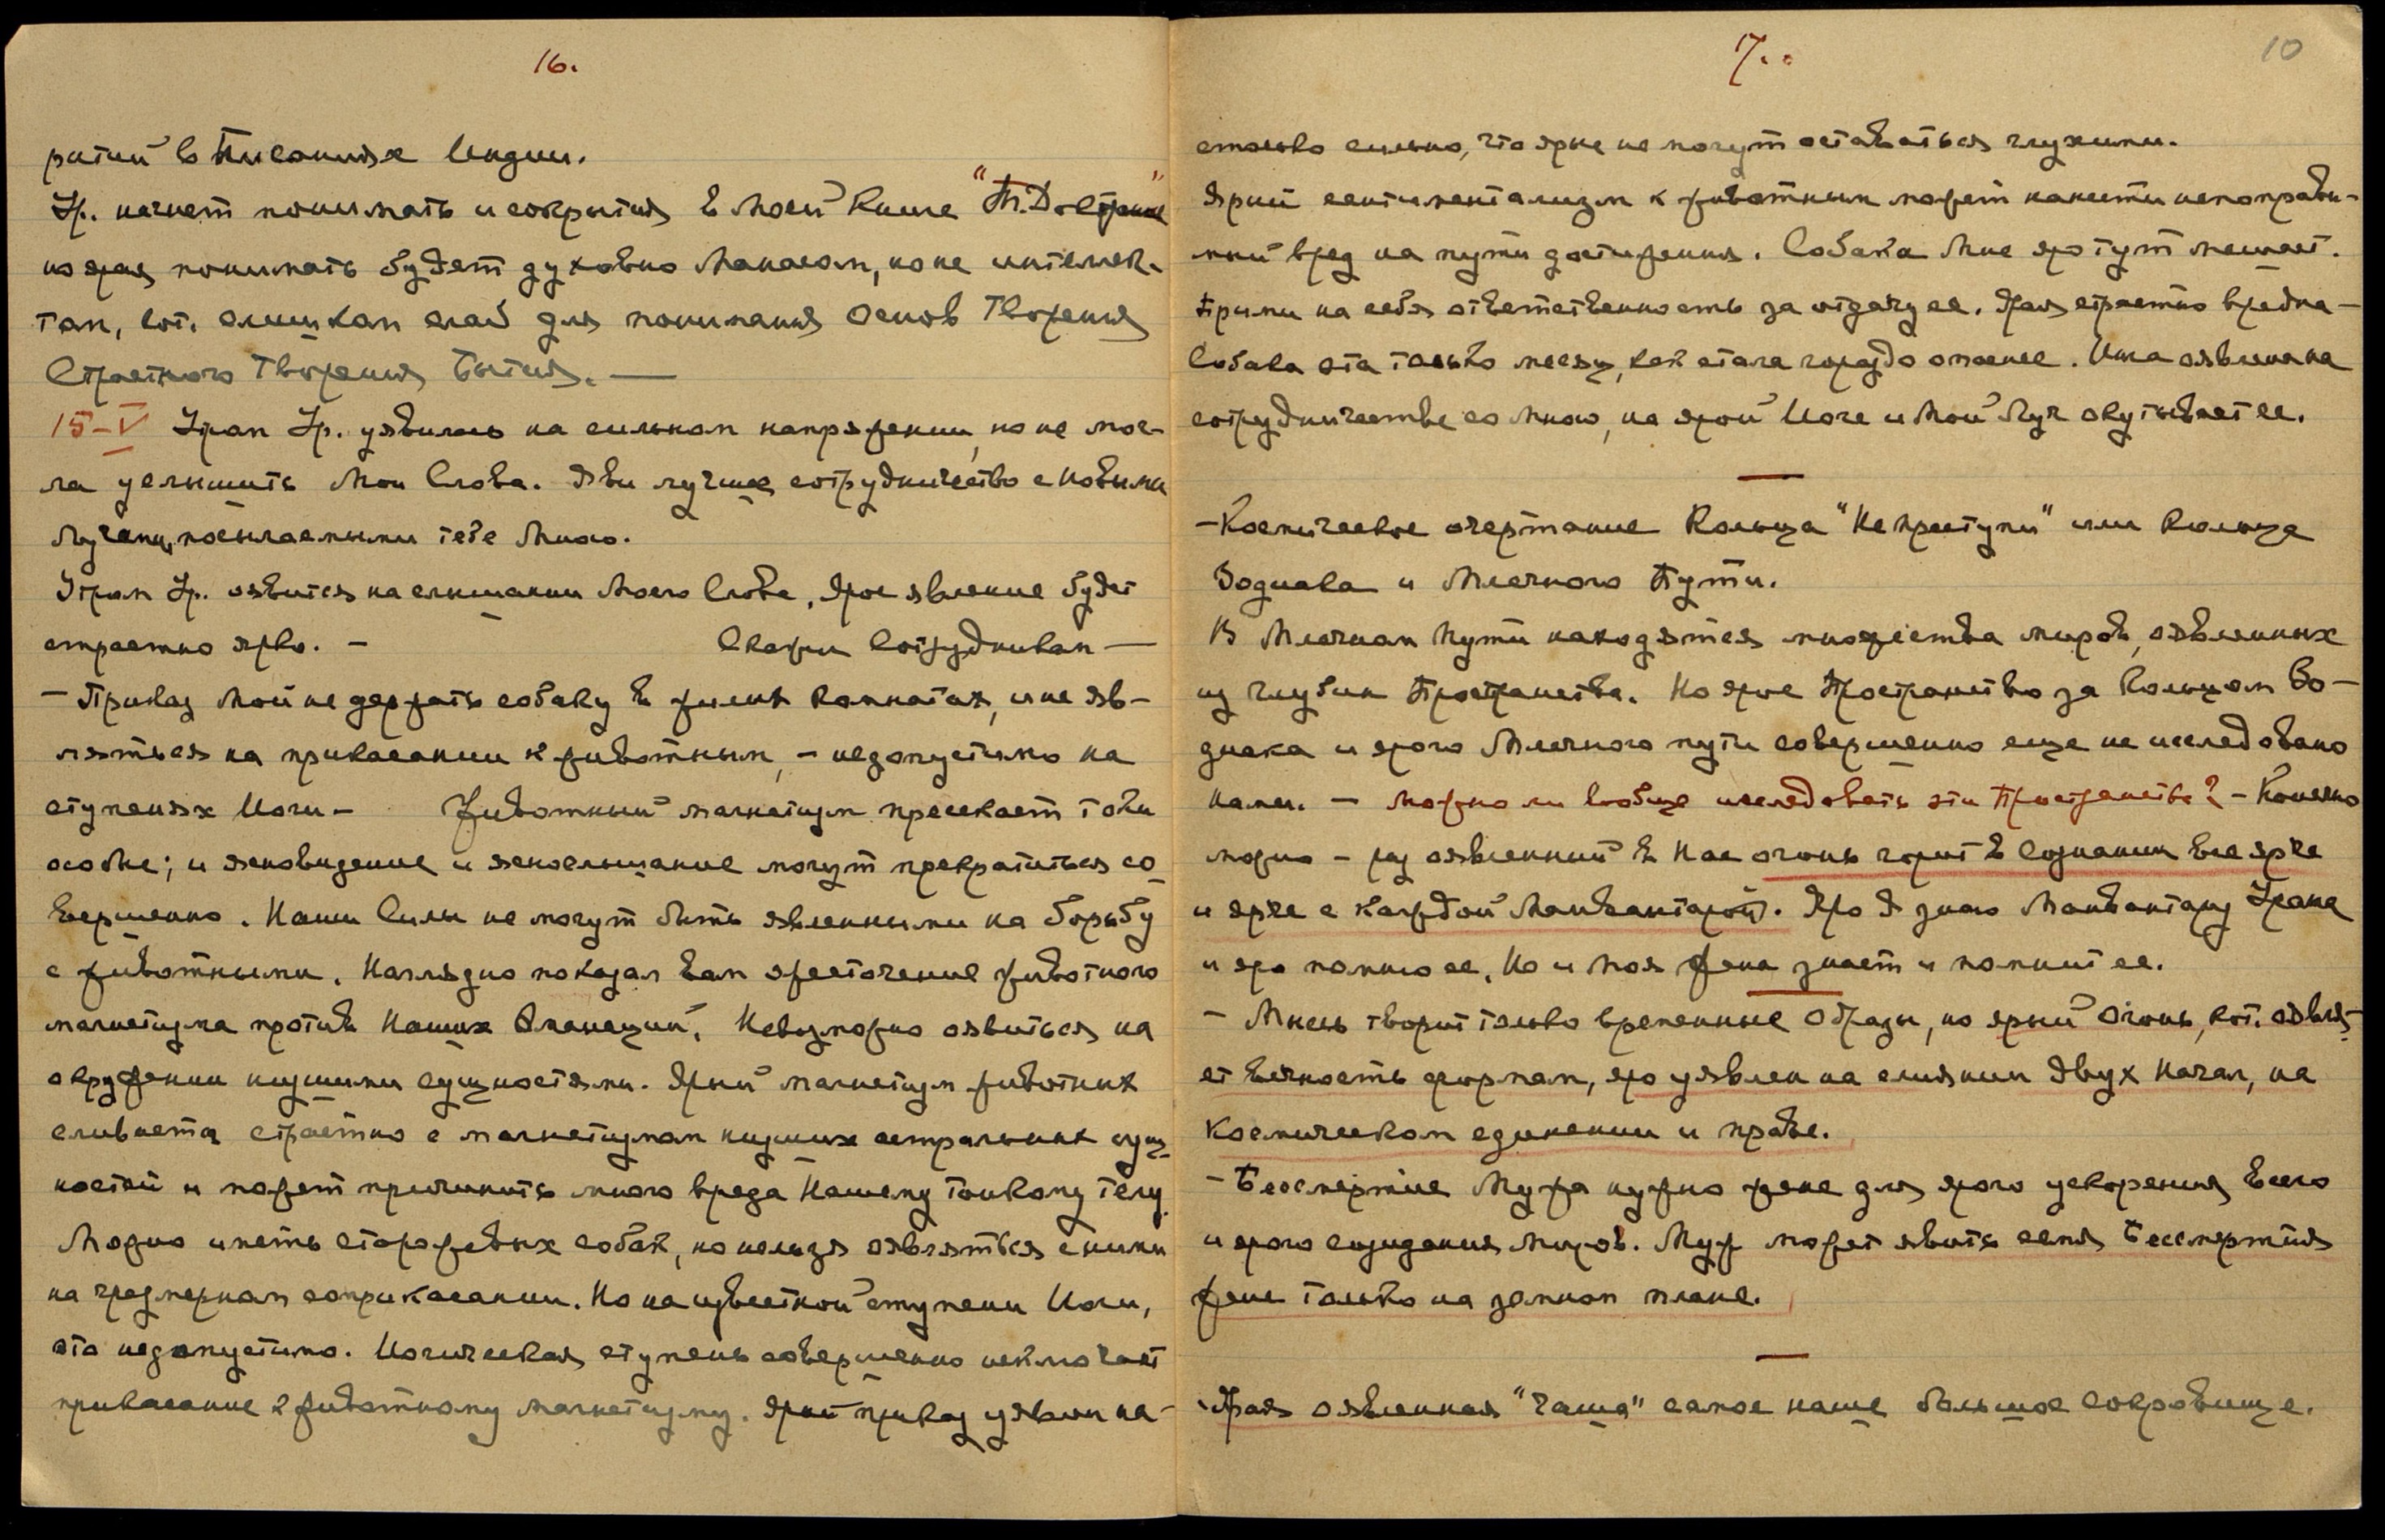 16.
рытий в Писаниях Индии.
Ур. начнет понимать и сокрытия в моей книге "Т. Доктрине"
но яро понимать будет духовно Манасом, но не интеллек-
том, кот. слишком слаб для понимания Основ Творения
Страстного Творения Бытия. —
15-V Утром Ур. уявилась на сильном напряжении, но не мог-
ла услышать Мои Слова. Яви лучшее сотрудничество с новыми
Лучами, посылаемыми тебе Мною.
Утром Ур. оявится на слышании Моего Слова. Ярое явление будет
страстно ярко. — Скажи Сотрудникам —
— Приказ Мой не держать собаку в жилых комнатах, и не яв-
ляться на прикасании к животным, — недопустимо на
ступенях Йоги — Животный магнетизм пресекает токи
особые; и ясновидение и яснослышание могут прекратиться со-
вершенно. Наши Силы не могут быть явленными на борьбу
с животными. Наглядно показал вам ожесточение животного
магнетизма против Наших Эманаций. Невозможно оявиться на
окружении низшими сущностями. Ярый магнетизм животных
сливается страстно с магнетизмом низших астральных сущ-
ностей и может причинить много вреда Нашему Тонкому Телу.
Можно иметь сторожевых собак, но нельзя оявляться с ними
на чрезмерном соприкасании. Но на известной ступени Йоги,
это недопустимо. Йогическая ступень совершенно исключает
прикасание к животному магнетизму. Ярый приказ уявлен на-
17.
10
столько сильно, что ярые не могут оставаться глухими.
Ярый сентиментализм к животным может нанести непоправи-
мый вред на пути достижения. Собака Мне яро тут мешает.
Прими на себя ответственность за отдачу ее. Ярая страстно вредна —
Собака эта только месяц, как стала гораздо опаснее. оявлена на
сотрудничестве со Мною, на ярой Йоге и Мой Луч окутывает ее.
— Космическое очертание Кольца "Не преступи" или кольца
Зодиака и Млечного Пути.
В Млечном Пути находятся множества миров, оявленных
из глубин Пространства. Но ярое Пространство за Кольцом Зо-
диака и ярого Млечного пути совершенно еще не исследовано
нами. — Можно ли вообще исследовать эти Пространства? — Конечно
можно — раз оявленный в Нас огонь горит в сознании все ярче
и ярче с каждой Манвантарой. Яро Я знаю Манвантару Урана
и яро помню ее. Но и Моя жена знает и помнит ее.
— Мысль творит только временные образы, но ярый Огонь, кот. оявля-
ет вечность формам, яро уявлен на слиянии Двух Начал, на
космическом единении и праве.
— Бессмертие Мужа нужно жене для ярого ускорения всего
и ярого созидания миров. Муж может явить семя Бессмертия
жене только на земном плане.
— Ярая оявленная "Чаша" самое наше большое сокровище.